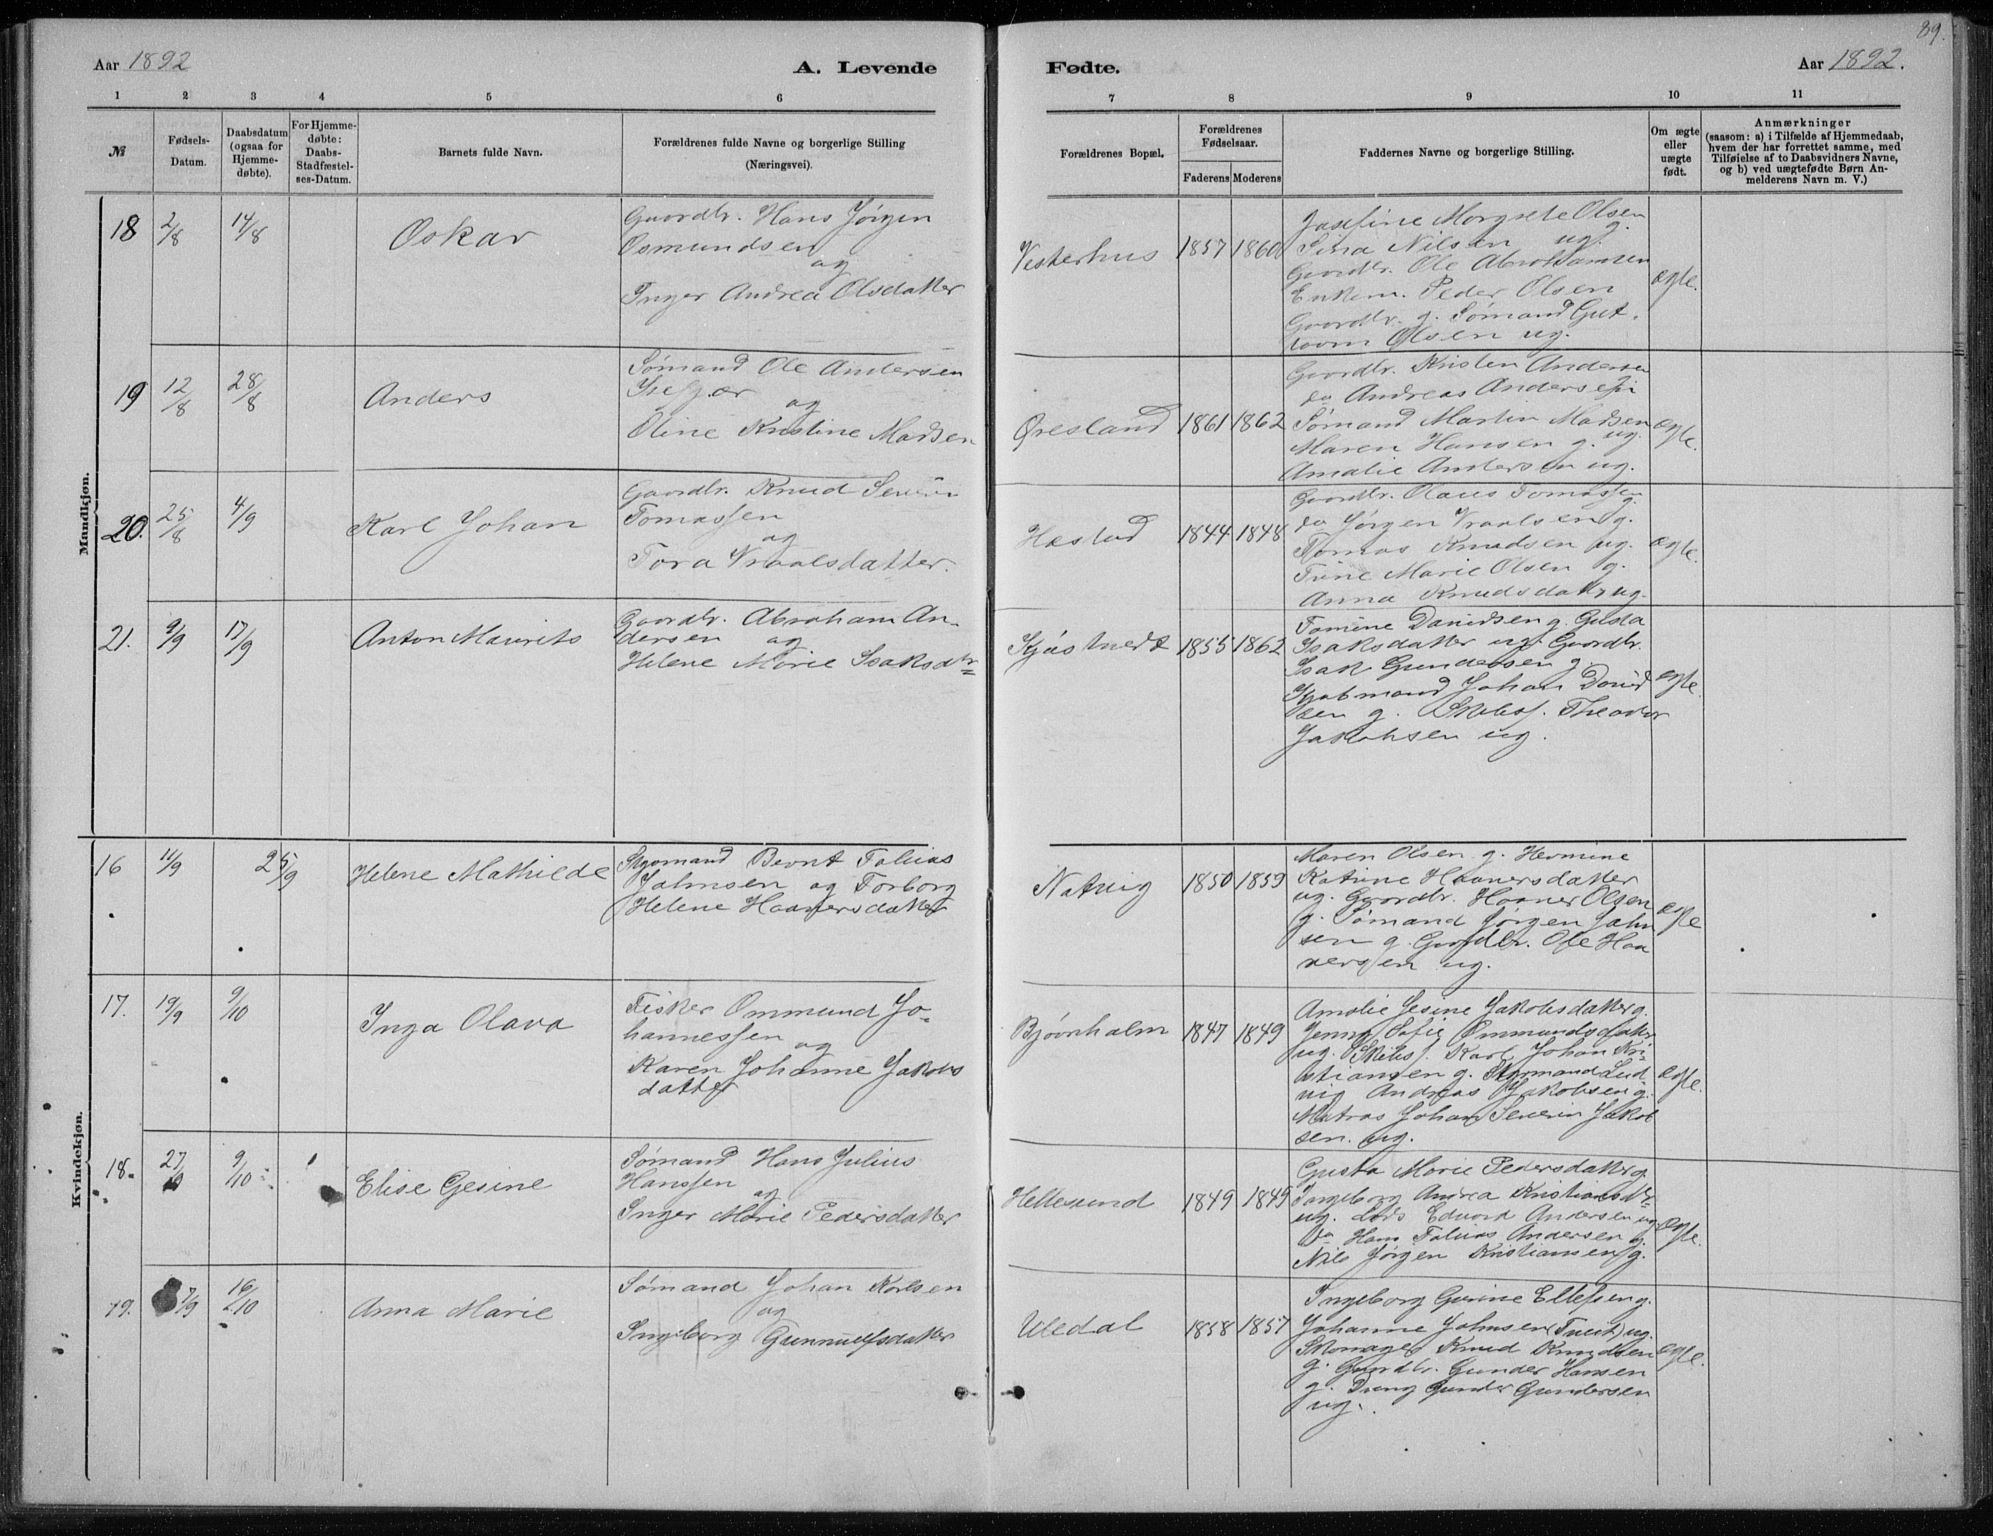 89.
Aar 1892
A. Levende
Fødte.
Aar 1892.
1 2 3 4 5 6 7 8 9 10 11
№
Fødsels-
Datum.
Daabsdatum
(ogsaa for
Hjemme-
døbte).
For Hjemme-
døbte:
Daabs-
Stadfæstel-
ses-Datum.
Barnets fulde Navn.
Forældrenes fulde Navne og borgerlige Stilling
(Næringsvei).
Forældrenes Bopæl.
Forældrenes
Fødselsaar.
Faderens Moderens
Faddernes Navne og borgerlige Stilling.
Om ægte
eller
uægte
født.
Anmærkninger
(saasom: a) i Tilfælde af Hjemmedaab,
hvem der har forrettet samme, med
Tilføielse af to Daabsvidners Navne,
og b) ved uægtefødte Børn An-
melderens Navn m. V.)
Mandkjøn.
18 2/8 14/8 Oskar
Gaardbr. Hans Jørgen
Osmundsen
og
Inger Andrea Olsdatter
Vesterhus 1857 1860
Josefine Morgrete Olsen
g.
Sina Nilsen ug.
Gaardbr. Ole Abrahamsen
Enkem. Peder Olsen
Gaardbr. g. Sømand Gut.
Olsen ug.
ægte.
19 12/8 28/8 Anders
Sømand Ole Andersen
og
Oline Kristine Madsen
Øresland 1861 1862
Gaardbr. Kristen Andersen
do Andreas Andersen
Sømand Martin Madsen
ug.
Maren Hansen g.
Amalie Andersen ug.
ægte.
20. 25/8 4/9 Karl Johan
Gaardbr. Knud Severin
Tomassen
og
Tora Vraalsdatter.
Hæstad 1844 1848
Gaardbr. Olaus Tomassen
g.
do Jørgen Vraalsen g.
Tomas Knudsen ug.
Trine Marie Olsen g.
Anna Knudsdatter ug.
ægte.
21. 9/9 17/9 Anton Maurits
Gaardbr. Abraham An-
dersen og
Helene Marie Isaksdtr
1855 1862
Tomine Danielsen g. Gusta
Isaksdatter ug. Gaardbr.
Isak Gundersen g.
Kjøbmand Johan Daniel
sen g. Skibsf. Theodor
Jakobsen ug.
ægte.
Kvindekjøn.
16 11/9 25/9 Helene Mathilde
Styrmand Bernt Tobias
Johnsen og Torborg
Helene Haaversdatter
Natvig 1850 1859
Maren Olsen g. Hermine
Katrine Haaversdatter
ug. Gaardbr. Haaver Olsen
g. Sømand Jørgen John
sen g. Gaardbr. Ole Haa
versen ug.
ægte
17. 19/9 9/10 Inga Olava
Fisker Ommund Jo-
hannessen
og
Karen Johanne Jakobs
datter
Bjørnholm 1847 1849
Amalie Gesine Jakobsdatter g.
Jenny Sofie Ommundsdatter
ug. Skibsf. Karl Johan Kri-
stiansen g. Styrmand Lud
vig Andreas Jakobsen g.
Matros Johan Severin Jakob
sen. ug.
ægte.
18. 27/9 9/10 Elise Gesine
Sømand Hans Julius
Hanssen
og
Inger Marie Pedersdatter
Hellesund 1849 1849
Gusta Marie Pedersdatter g.
Ingeborg Andrea Kristiansdtr
ug. Lods Edvard Andersen ug
do Hans Tobias Andersen g.
Nils Jørgen Kristiansen g.
ægte.
19. 7/9 16/10 Anna Marie
Sømand Johan Karlsen
og
Ingeborg Gunnulfsdatter
Uledal 1858 1857
Ingeborg Gurine Ellefsen g.
Johanne Johnsen (Tveit) ug.
Skomager Knud Knudsen
g. Gaardbr. Gunder Hansen
g. Dreng Gunder Gundersen
ug.
ægte.